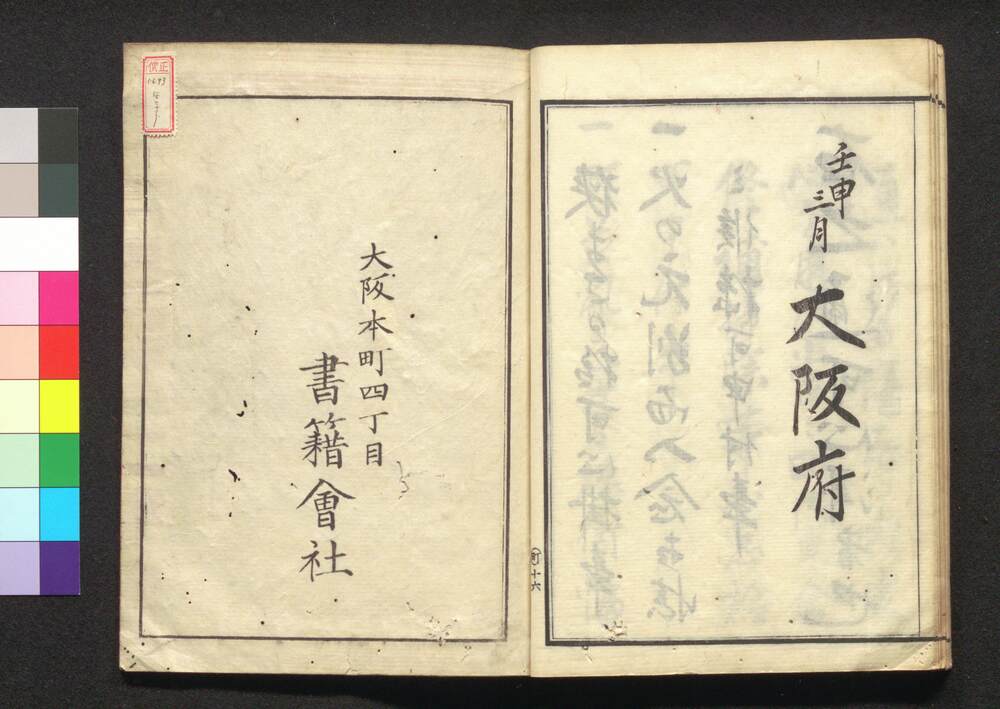 壬申
三月
大阪府
町十六
大阪本町四丁目
書籍會社